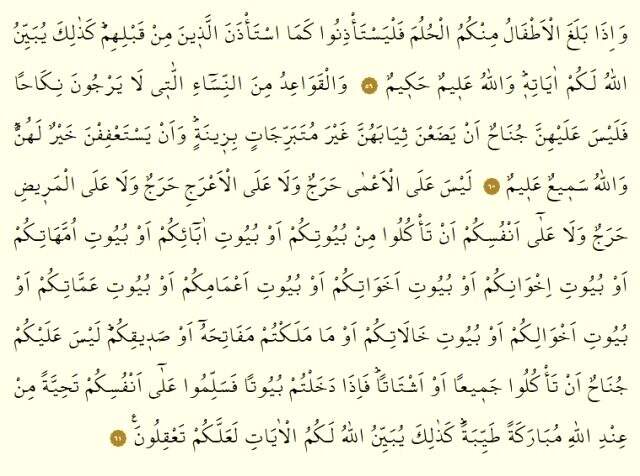 وَاِذَا بَلَغَ الْاَطْفَالُ مِنْكُمُ الْحُلُمَ فَلْيَسْتَأْذِنُوا كَمَا اسْتَأْذَنَ الَّذ۪ينَ مِنْ قَبْلِهِمْۜ كَذٰلِكَ يُبَيِّنُ
اللّٰهُ لَكُمْ اٰيَاتِه۪ۜ وَاللّٰهُ عَل۪يمٌ حَك۪يمٌ ٥٩ وَالْقَوَاعِدُ مِنَ النِّسَٓاءِ الّٰت۪ي لَا يَرْجُونَ نِكَاحًا
فَلَيْسَ عَلَيْهِنَّ جُنَاحٌ اَنْ يَضَعْنَ ثِيَابَهُنَّ غَيْرَ مُتَبَرِّجَاتٍ بِز۪ينَةٍۜ وَاَنْ يَسْتَعْفِفْنَ خَيْرٌ لَهُنَّۜ
وَاللّٰهُ سَم۪يعٌ عَل۪يمٌ ٦٠ لَيْسَ عَلَى الْاَعْمٰى حَرَجٌ وَلَا عَلَى الْاَعْرَجِ حَرَجٌ وَلَا عَلَى الْمَر۪يضِ
حَرَجٌ وَلَا عَلٰٓى اَنْفُسِكُمْ اَنْ تَأْكُلُوا مِنْ بُيُوتِكُمْ اَوْ بُيُوتِ اٰبَٓائِكُمْ اَوْ بُيُوتِ اُمَّهَاتِكُمْ
اَوْ بُيُوتِ اِخْوَانِكُمْ اَوْ بُيُوتِ اَخَوَاتِكُمْ اَوْ بُيُوتِ اَعْمَامِكُمْ اَوْ بُيُوتِ عَمَّاتِكُمْ اَوْ
بُيُوتِ اَخْوَالِكُمْ اَوْ بُيُوتِ خَالَاتِكُمْ اَوْ مَا مَلَكْتُمْ مَفَاتِحَهُٓ اَوْ صَد۪يقِكُمْۜ لَيْسَ عَلَيْكُمْ
جُنَاحٌ اَنْ تَأْكُلُوا جَم۪يعًا اَوْ اَشْتَاتًاۜ فَاِذَا دَخَلْتُمْ بُيُوتًا فَسَلِّمُوا عَلٰٓى اَنْفُسِكُمْ تَحِيَّةً مِنْ
عِنْدِ اللّٰهِ مُبَارَكَةً طَيِّبَةًۜ كَذٰلِكَ يُبَيِّنُ اللّٰهُ لَكُمُ الْاٰيَاتِ لَعَلَّكُمْ تَعْقِلُونَ۟ ٦١